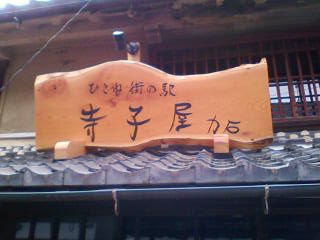 ひこね街の駅
寺子屋 力石